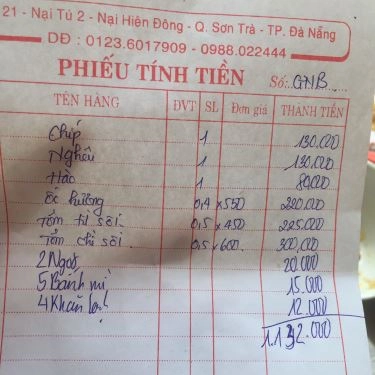 21 - Nại Tú 2 - Nại Hiên Đông - Q. Sơn Trà - TP. Đà Nẵng
DĐ : 0123.6017909 - 0988.022444
PHIẾU TÍNH TIỀN Số: GNB
TÊN HÀNG ĐVT SL Đơn giá THÀNH TIỀN
Chíp 1 130.000
Nghêu 1 130.000
Hào 1 80.000
ốc hương 0,4 x 550 220.000
Tôm tít sôi 0,5 x 450 225.000
Tôm chì sôi 0,5 x 600 300.000
2 Ngọt 20.000
5 Bánh mì 15.000
4 Khăn lạnh 12.000
1.132.000